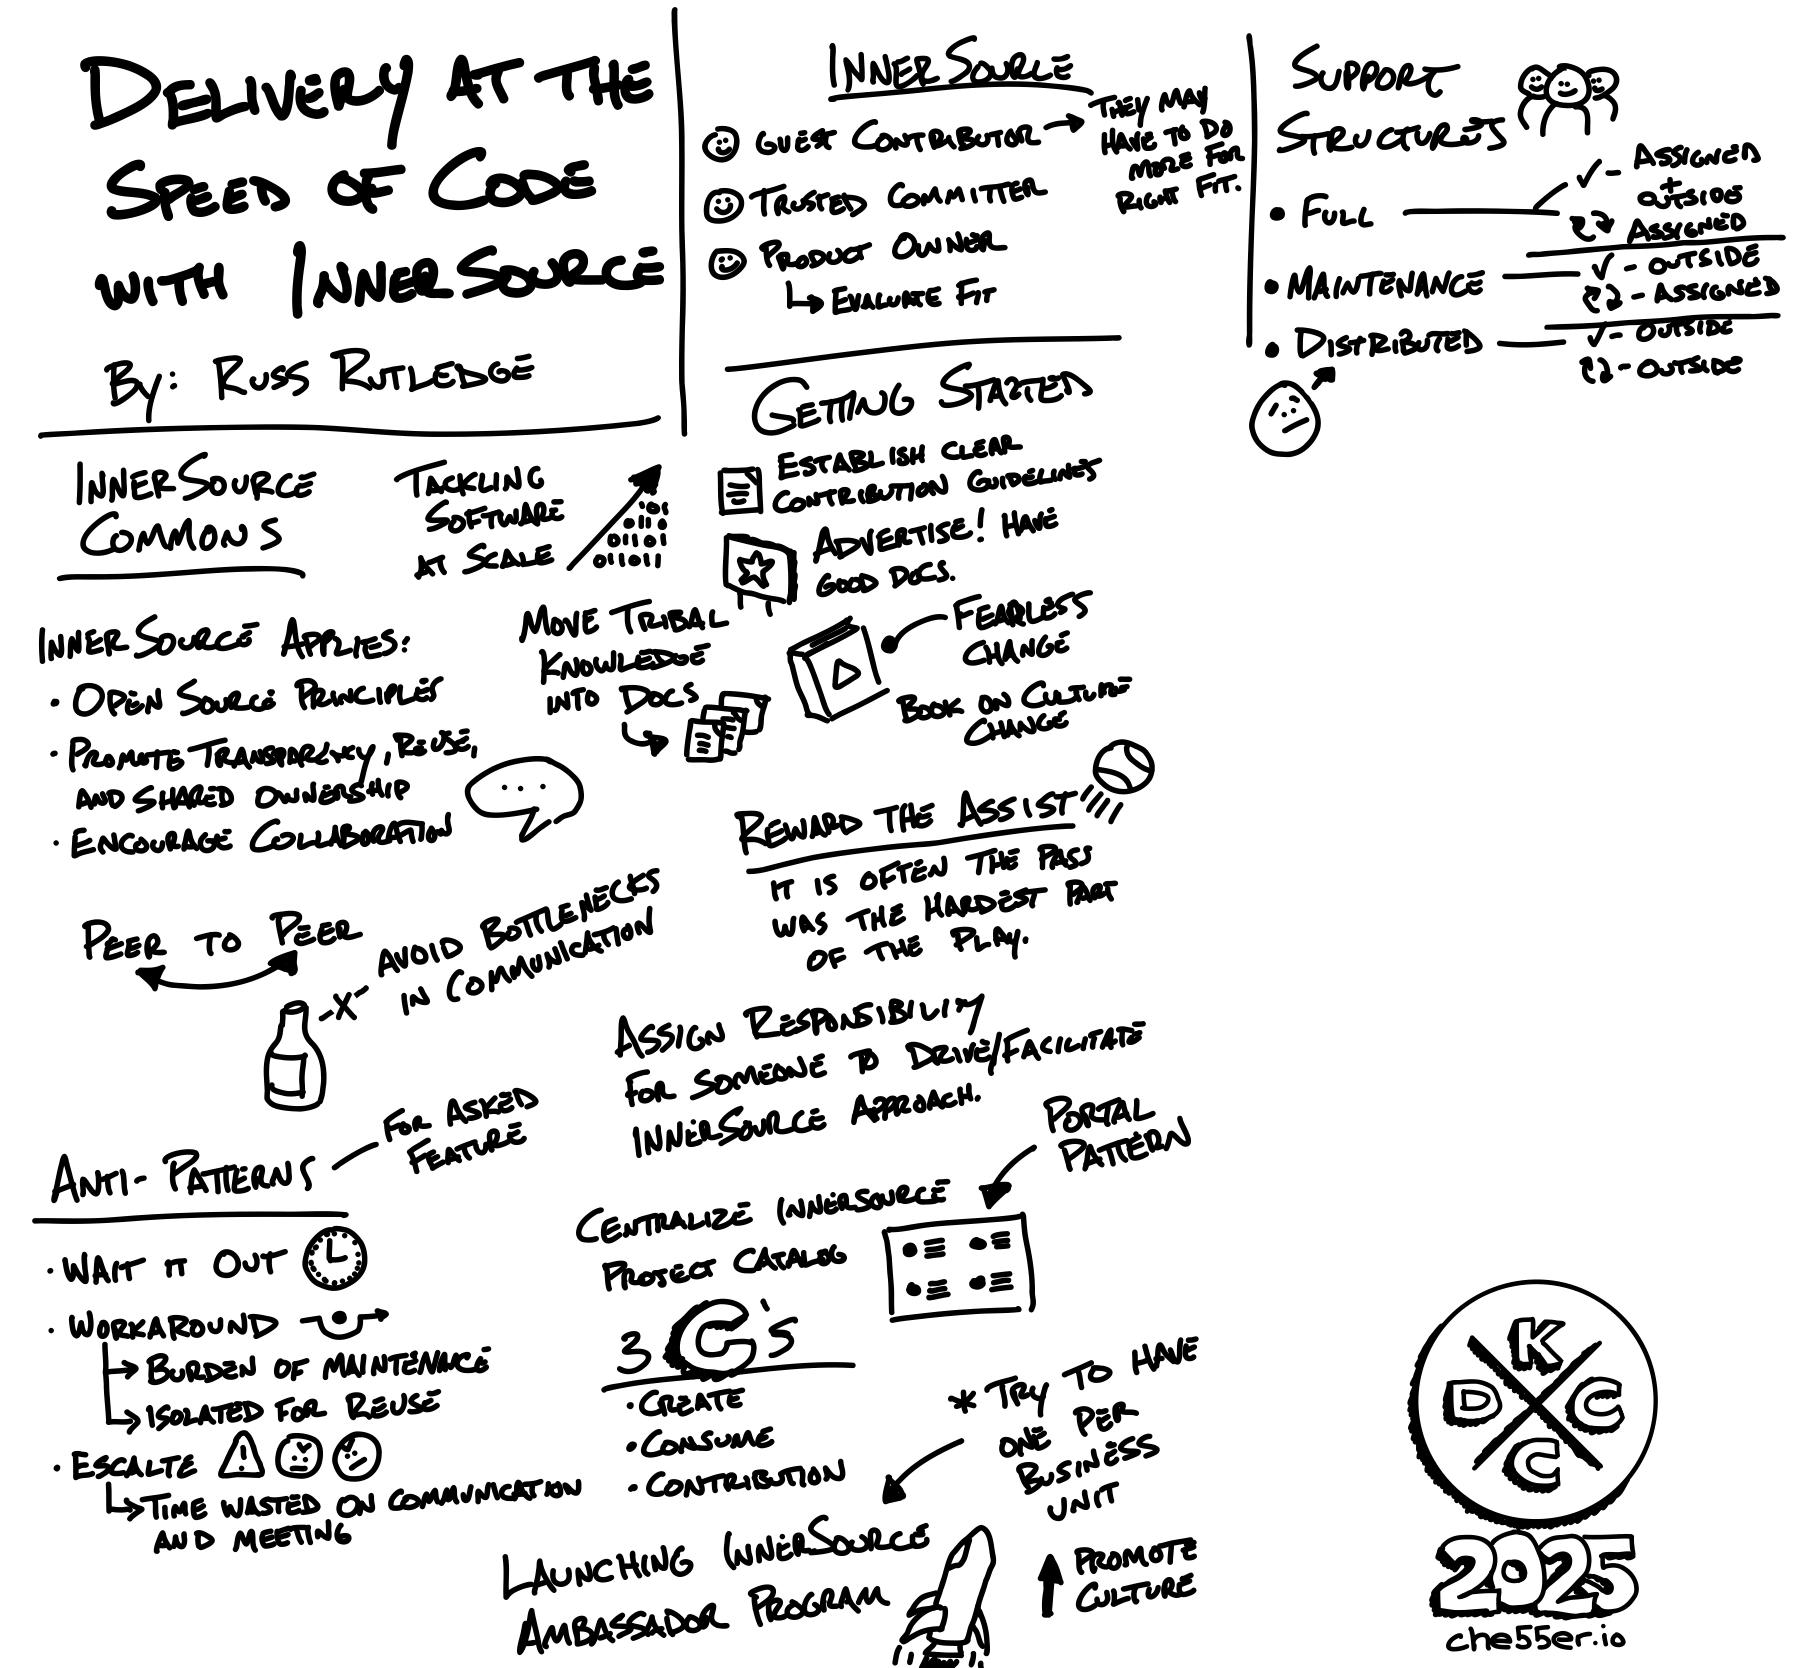 DELIVERY AT THE
SPEED OF CODE
WITH INNERSOURCE
BY: RUSS RUTLEDGE
INNERSOURCE
COMMONS
TACKLING
SOFTWARE
AT SCALE
INNERSOURCE APPLIES:
· OPEN SOURCE PRINCIPLES
· PROMOTE TRANSPARENCY, REUSE,
AND SHARED OWNERSHIP
· ENCOURAGE COLLABORATION
MOVE TRIBAL
KNOWLEDGE
INTO DOCS
PEER TO PEER
AVOID BOTTLENECKS
IN COMMUNICATION
ANTI-PATTERNS
FOR ASKED
FEATURE
· WAIT IT OUT
· WORKAROUND
BURDEN OF MAINTENANCE
ISOLATED FOR REUSE
· ESCALTE
TIME WASTED ON COMMUNICATION
AND MEETING
INNERSOURCE
GUEST CONTRIBUTOR
THEY MAY
HAVE TO DO
MORE FOR
RIGHT FIT.
TRUSTED COMMITTER
PRODUCT OWNER
EVALUATE FIT
GETTING STARTED
ESTABLISH CLEAR
CONTRIBUTION GUIDELINES
ADVERTISE! HAVE
GOOD DOCS.
FEARLESS
CHANGE
BOOK ON CULTURE
CHANGE
REWARD THE ASSIST
IT IS OFTEN THE PASS
WAS THE HARDEST PART
OF THE PLAY.
ASSIGN RESPONSIBILITY
FOR SOMEONE TO DRIVE/FACILITATE
INNERSOURCE APPROACH.
PORTAL
PATTERN
CENTRALIZE INNERSOURCE
PROJECT CATALOG
3 C'S
· CREATE
· CONSUME
· CONTRIBUTION
* TRY TO HAVE
ONE PER
BUSINESS
UNIT
LAUNCHING INNERSOURCE
AMBASSADOR PROGRAM
PROMOTE
CULTURE
SUPPORT
STRUCTURES
• FULL
✓- ASSIGNED
+
OUTSIDE
ASSIGNED
• MAINTENANCE
✓ - OUTSIDE
- ASSIGNED
• DISTRIBUTED
✓- OUTSIDE
- OUTSIDE
K
D C
C
2025
che55er.io